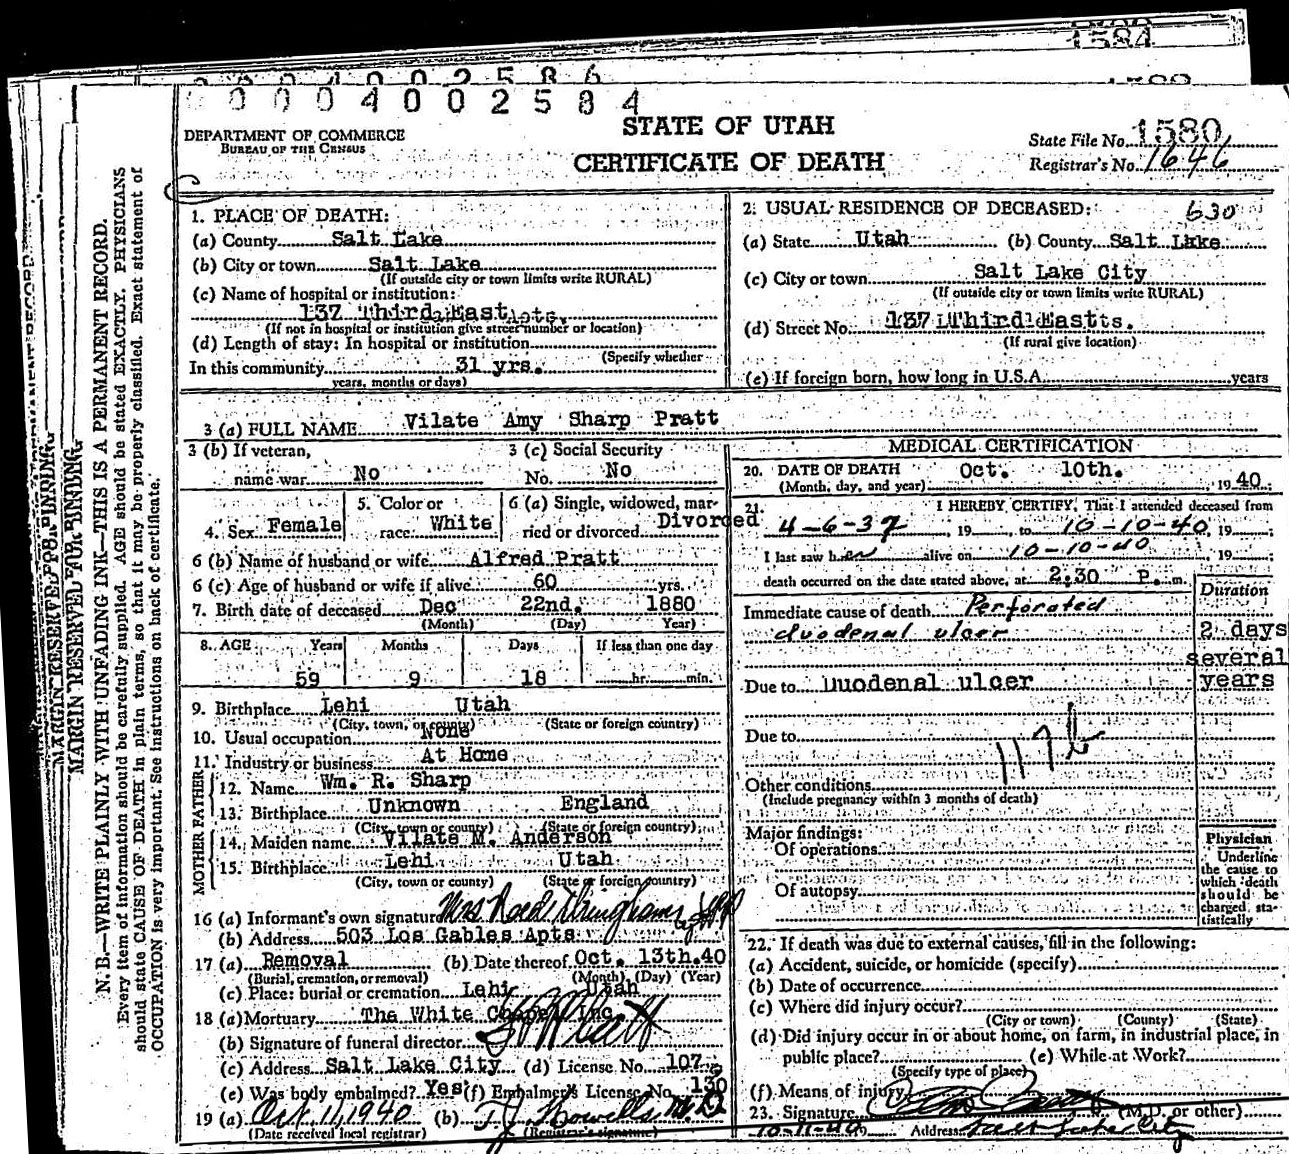 1584
0004002586
0004002584
DEPARTMENT OF COMMERCE
BUREAU OF THE CENSUS
STATE OF UTAH
CERTIFICATE OF DEATH
State File No. 1580
Registrar's No. 1646
MARGIN RESERVED FOR BINDING
N. B.—WRITE PLAINLY WITH UNFADING INK—THIS IS A PERMANENT RECORD.
Every item of information should be carefully supplied. AGE should be stated EXACTLY. PHYSICIANS
should state CAUSE OF DEATH in plain terms, so that it may be properly classified. Exact statement of
OCCUPATION is very important. See instructions on back of certificate.
1. PLACE OF DEATH:
(a) County Salt Lake
(b) City or town Salt Lake
(If outside city or town limits write RURAL)
(c) Name of hospital or institution:
137 Third East
(If not in hospital or institution give street number or location)
(d) Length of stay: In hospital or institution
(Specify whether
In this community 31 yrs.
years, months or days)
2. USUAL RESIDENCE OF DECEASED: 630
(a) State Utah (b) County Salt Lake
(c) City or town Salt Lake City
(If outside city or town limits write RURAL)
(d) Street No. 137 Third East
(If rural give location)
(e) If foreign born, how long in U.S.A. years
3 (a) FULL NAME Vilate Amy Sharp Pratt
3 (b) If veteran,
name war No
3 (c) Social Security
No. No
4. Sex Female
5. Color or
race White
6 (a) Single, widowed, mar-
ried or divorced Divorced
6 (b) Name of husband or wife Alfred Pratt
6 (c) Age of husband or wife if alive 60 yrs.
7. Birth date of deceased Dec 22nd. 1880
(Month) (Day) Year)
8. AGE Years Months Days If less than one day
59 9 18 hr. min.
9. Birthplace Lehi Utah
(City, town, or county) (State or foreign country)
10. Usual occupation None
11. Industry or business At Home
FATHER
12. Name Wm. R. Sharp
13. Birthplace Unknown England
(City, town or county) (State or foreign country)
MOTHER
14. Maiden name Vilate M. Anderson
15. Birthplace Lehi Utah
(City, town or county) (State or foreign country)
16 (a) Informant's own signature Mrs
(b) Address 503 Los Gables Apts
17 (a) Removal (b) Date thereof Oct. 13th. 40
(Burial, cremation, or removal) (Month) (Day) (Year)
(c) Place: burial or cremation Lehi Utah
18 (a) Mortuary The White Chapel Inc
(b) Signature of funeral director
(c) Address Salt Lake City (d) License No. 107
(e) Was body embalmed? Yes (f) Embalmer's License No. 130
19 (a) Oct. 11, 1940 (b) T J Howells M.D.
(Date received local registrar) (Registrar's signature)
MEDICAL CERTIFICATION
20. DATE OF DEATH Oct. 10th. 19 40
(Month, day, and year)
21. I HEREBY CERTIFY, That I attended deceased from
4-6-37, 19 to 10-10-40, 19
I last saw her alive on 10-10-40, 19
death occurred on the date stated above, at 2:30 P. m.
Duration
Immediate cause of death Perforated
duodenal ulcer 2 days
several
Due to Duodenal ulcer years
Due to
117b
Other conditions
(Include pregnancy within 3 months of death)
Major findings:
Of operations
Of autopsy
Physician
Underline
the cause to
which death
should be
charged sta-
tistically
22. If death was due to external causes, fill in the following:
(a) Accident, suicide, or homicide (specify)
(b) Date of occurrence
(c) Where did injury occur?
(City or town) (County) (State)
(d) Did injury occur in or about home, on farm, in industrial place, in
public place? (e) While at Work?
(Specify type of place)
(f) Means of injury
23. Signature (M.D. or other)
10-11-40 Address Salt Lake City